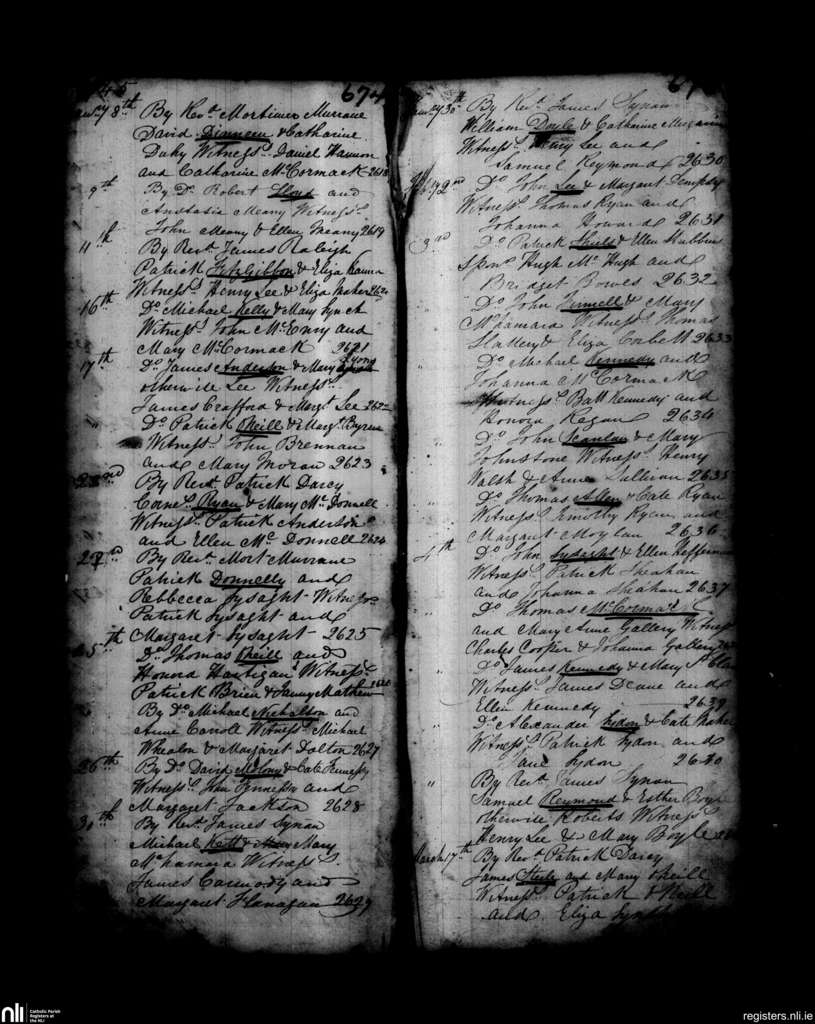 45 674
Jany 8th By Revt. Mortimer Murrane
David Dinneen & Catharine
Duhy Witness. Daniel Hannon
and Catharine McCormack 2618
9th By Do. Robert Lloyd and
Anstasia Meany Witness.
John Meany & Ellen Meany 2619
11th By Revt. James Raleigh
Patrick FitzGibbon & Eliza Hanna
Witness. Henry Lee & Eliza Maher 2620
16th Do. Michael Kelly & Mary Lynch
Witness. John McEnry and
Mary McCormack 2621
17th Do. James Anderson & Mary Lyons
otherwise Lee Witness.
James Crafford & Margt. Lee 262
" Do. Patrick ONeill & Margt. Byrne
Witness. John Brennan
and Mary Moran 2623
22nd By Revt. Patrick Darcy
Corns. Ryan & Mary McDonnell
Witness. Patrick Anderson
and Ellen McDonnell 2624
By Revt. Mort Murrane
Patrick Donnelly and
Rebbecca Lysaght Witness
Patrick Lysaght and
Margaret Lysaght 2625
25th Do. Thomas ONeill and
Honora Hartigan Witness.
Patrick Brien & Fanny Mathew 2626
By Do. Michael Nicholson and
Anne Carroll Witness. Michael
Whealon & Margaret Dolton 2627
26th By Do. David Molony & Cate Fennessy
Witness. John Fennessy and
Margaget Jackson 2628
30th By Revt. James Synan
Michael Keitt & Mary
McNamara Witness.
James Carmody and
Margaret Flanagan 2629
Jany 30th By Revt. James Synan
William Doyle & Catharine
Witness. Henry Lee and
Samuel Reymond 2630
Feby 2nd Do. John Lee & Margaret Dempsey
Witness. Thomas Ryan and
Johanna Howard 2631
3rd Do. Patrick Shiels & Ellen Stubbins
Spons. Hugh McHugh and
Bridget Bowes 2632
Do. John Finnell & Mary
McNamara Witness. Thomas
Slattery & Eliza Corbett 2633
Do. Michael Kennedy and
Johanna McCormack
Witness. Batt Kennedy and
Honora Regan 2634
Do. John Scanlan & Mary
Johnstone Witness. Henry
Walsh & Anne Sullivan 2635
Do. Thomas Allen & Cate Ryan
Witness. Timothy Ryan and
Margaret Moylan 2636
4th Do. John Lysaght & Ellen Heffernan
Witness. Patrick Sheahan
and Johanna Sheahan 2637
" Do. Thomas McCormack
and Mary Anne Gallery Witness
Charles Cooper & Johanna Gallery
" Do. James Kennedy & Mary
Witness. James Deane and
Ellen Kennedy 2639
" Do. Alexander Lydon & Cate Maher
Witness. Patrick Lydon and
Jane Lydon 2640
" By Revt. James Synan
Samuel Reymond & Esther Boyle
otherwise Roberts Witness
Henry Lee & Mary Boyle
March 17th By Revt. Patrick Darcy
James Steele and Mary ONeill
Witness. Patrick ONeill
and Eliza
nli Catholic Parish
Registers at
the NLI
registers.nli.ie